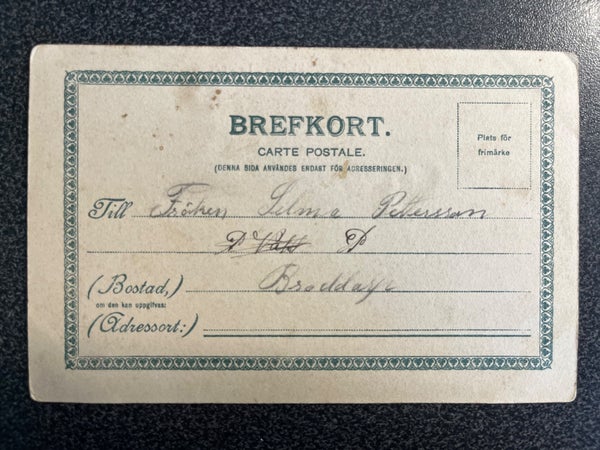 BREFKORT.
CARTE POSTALE.
(DENNA SIDA ANVÄNDES ENDAST FÖR ADRESSERINGEN.)
Plats för
frimärke
Till Fröken Selma Petersson
P P
(Bostad,)
om den kan uppgifvas:
(Adressort:)